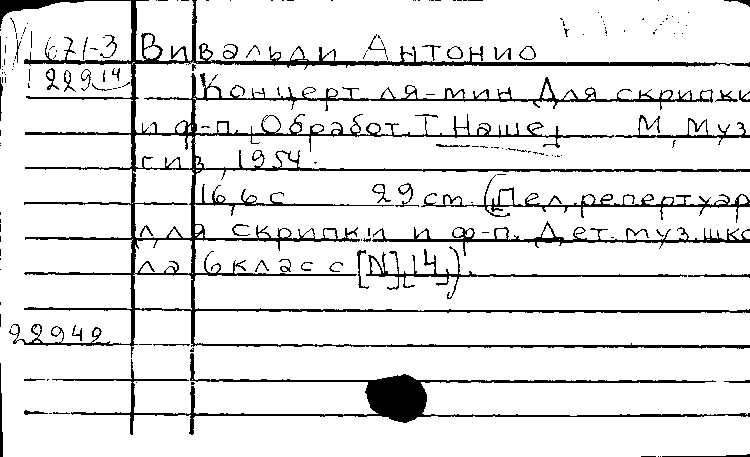 671-3 Вивальди Антонио
22914 Концерт ля-мин Для скрипки
и ф-п. [Обработ. Т. Наше] М, Муз
гиз, 1954.
16, 6 с 29 см. (Пед. репертуар
для скрипки и ф-п. Дет. муз. шко
ла 6 класс [N] [4])
22942